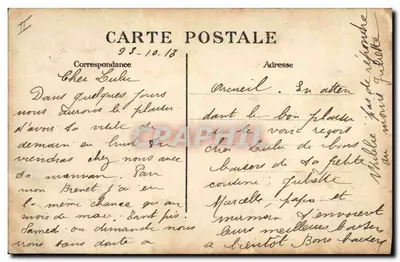 II
CARTE POSTALE
23-10-13
Correspondance
Adresse
Cher Lulu
Dans quelques jours
nous aurons le plaisir
d'avoir ta visite de
demain en huit tu
viendras chez nous avec
ta maman.
mon Brevet j'ai eu
la même chance qu'au
mois de mai. Tant pis
Samedi ou dimanche nous
irons sans doute à
Arcueil. En atten
dant le bon plaisir
de te voir reçois
cher Lulu de bons
baisers de ta petite
cousine Juliette
Marcelle, papa et
maman t'envoient
leurs meilleurs baisers
à bientôt Bons baisers
N'oublie pas de répondre
au moins Juliette
CPARAMA